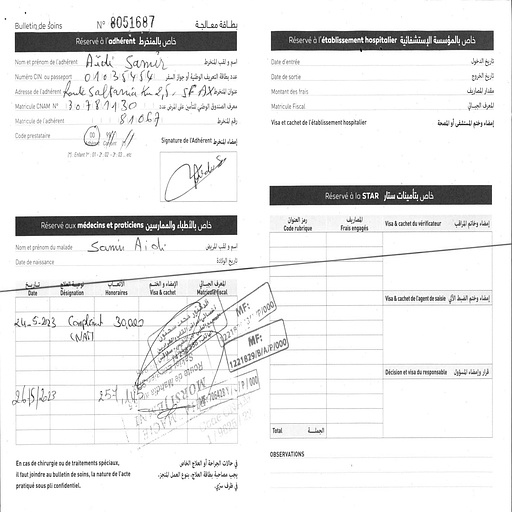 Bulletin de soins N° 8051687 بطاقة معالجة
Réservé à l'adhérent خاص بالمنخرط
Nom et prénom de l'adhérent Aïdi Samir اسم و لقب المنخرط
Numéro CIN ou passeport 01035454 عدد بطاقة التعريف الوطنية أو جواز السفر
Adresse de l'adhérent Route Saltania Km 2,5 SFAX عنوان المنخرط
Matricule CNAM N° 30781130 معرف الصندوق الوطني للتأمين على المرض عدد
Matricule de l'adhérent 81067 رقم المنخرط
Code prestataire 00
Signature de l'Adhérent إمضاء المنخرط
Réservé aux médecins et praticiens خاص بالأطباء والممارسين
Nom et prénom du malade Samir Aidi اسم و لقب المريض
Date de naissance تاريخ الولادة
Date Désignation Honoraires Visa & cachet Matricule fiscal
24-5-2023 Complément 30,000
CNAM
26/5/2023 257,145
MF:
1221829/B/A/P/000
MF:
1221829/B/A/P/000
Route de Mahdia
En cas de chirurgie ou de traitements spéciaux,
il faut joindre au bulletin de soins, la nature de l'acte
pratiqué sous pli confidentiel.
في حالات الجراحة أو العلاج الخاص
يجب مصاحبة بطاقة العلاج، بنوع العمل المنجز،
في ظرف سري.
Réservé à l'établissement hospitalier خاص بالمؤسسة الإستشفائية
Date d'entrée تاريخ الدخول
Date de sortie تاريخ الخروج
Montant des frais مقدار المصاريف
Matricule Fiscal المعرف الجبائي
Visa et cachet de l'établissement hospitalier إمضاء وختم المستشفى أو المصحة
Réservé à la STAR خاص بتأمينات ستار
رمز العنوان المصاريف
Code rubrique Frais engagés
Visa & cachet du vérificateur إمضاء وخاتم المراقب
Visa & cachet de l'agent de saisie إمضاء وختم الضبط الآلي
Décision et visa du responsable قرار وإمضاء المسؤول
Total الجملة
OBSERVATIONS